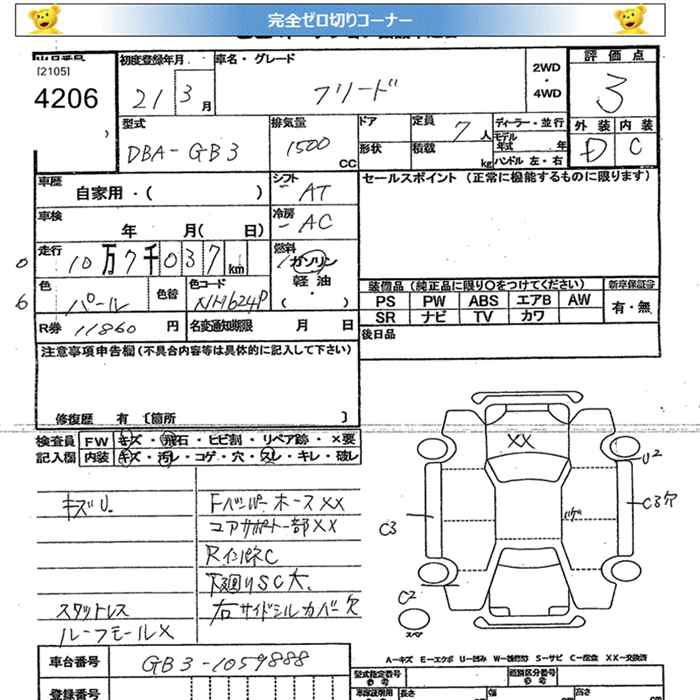 完全ゼロ切りコーナー
出品番号
[2105]
4206
初度登録年月
21 3月
車名・グレード
フリード
2WD
・
4WD
評価点
3
外装 内装
D C
型式
DBA-GB3
排気量
1500 CC
ドア
形状
定員 7人
積載 kg
ディーラー・並行
モデル年式 年
ハンドル 左・右
車歴
自家用・( )
シフト
AT
車検
年 月( 日)
冷房
AC
走行
10万7千037 km
燃料
ガソリン
軽油
( ・ )
色
パール
色替
色コード
NH624P
R券 11860 円
名変通知期限 月 日
セールスポイント (正常に機能するものに限ります)
装備品 (純正品に限り○をつけてください)
PS PW ABS エアB AW
SR ナビ TV カワ
新車保証書
有・無
後日品
注意事項申告欄(不具合内容等は具体的に記入して下さい)
修復歴 有 〔箇所 〕
検査員
記入欄
FW キズ・飛石・ヒビ割・リペア跡・×要
内装 キズ・汚レ・コゲ・穴・スレ・キレ・破レ
キズU
スタットレス
ルーフモール×
Fバンパーホース××
コアサポート一部××
RインパネC
下廻りSC大
右サイドシルカバー欠
××
U2
C3
C3欠
C2
スペア
A－キズ E－エクボ U－凹み W－補修跡 S－サビ C－腐食 ××－交換済
車台番号
GB3-1059888
登録番号
型式指定番号
参考
類別区分番号
参考
長さ
幅
高さ